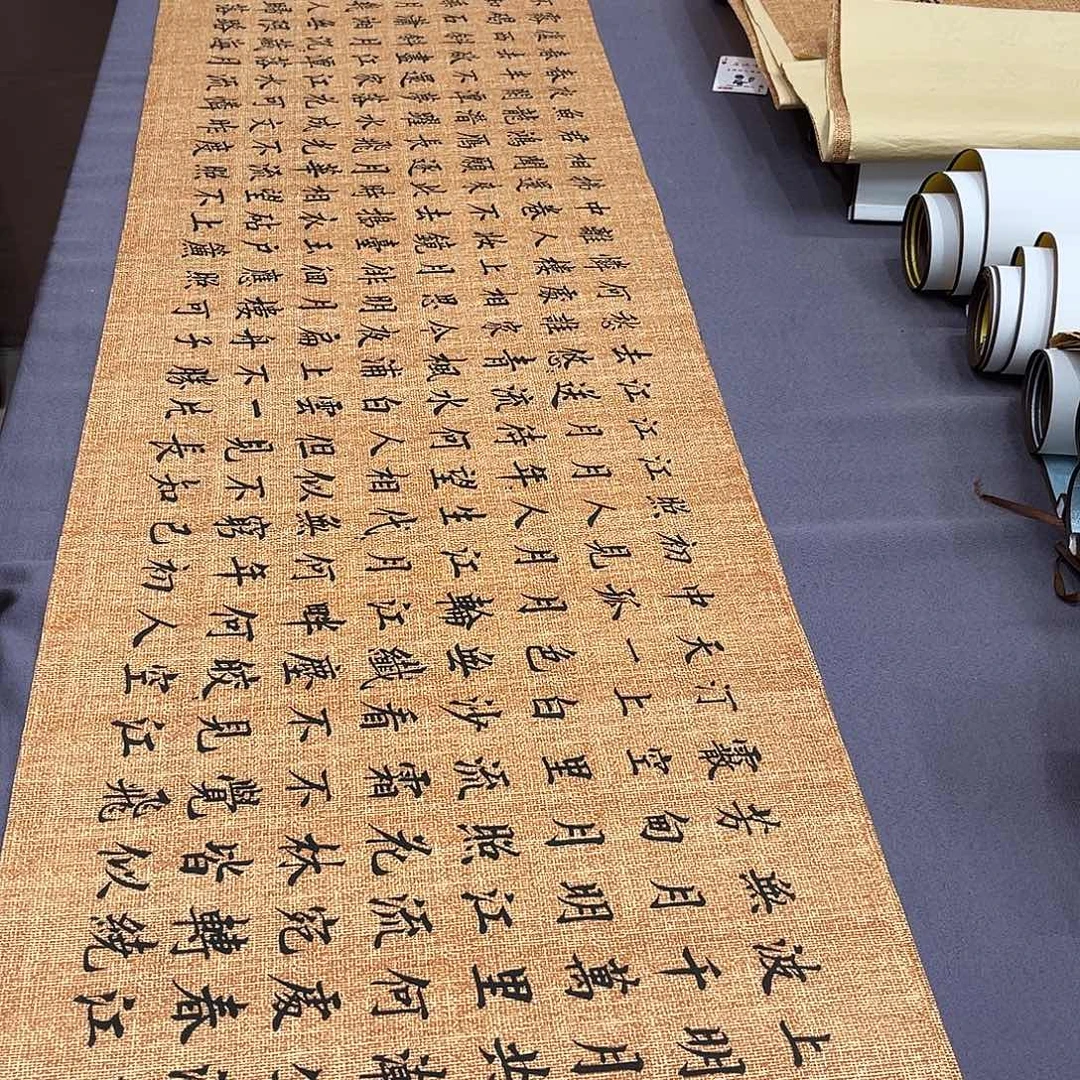 上明月共潮
波千萬里何處春江
無月明江流宛轉繞
芳甸月照花林皆似
霰空里流霜不覺飛
汀上白沙看不見江
天一色無纖塵皎空
中孤月輪江畔何人
初見月江月何年初
照人人生代無窮已
江月年望相似不知
江月待何人但見長
江送流水白雲一片
去悠青楓浦上不勝
愁誰家今夜扁舟子
何處相思明月樓可
憐樓上月徘徊應照
離人妝鏡臺玉戶簾
中捲不去擣衣砧上
拂還來此時相望不
相聞願逐月華流照
君鴻雁長飛光不度
魚龍潛躍水成文昨
夜閒潭夢落花可憐
春半不還家江水流
春去欲盡江潭落月